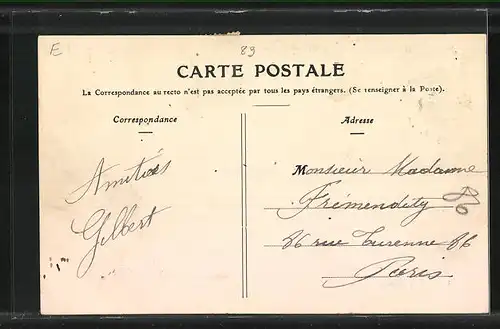 E
89
CARTE POSTALE
La Correspondance au recto n'est pas acceptée par tous les pays étrangers. (Se renseigner à la Poste).
Correspondance
Adresse
Amitiés
Gilbert
Monsieur Madame
Frémendity
86
86 rue Turenne 86
Paris